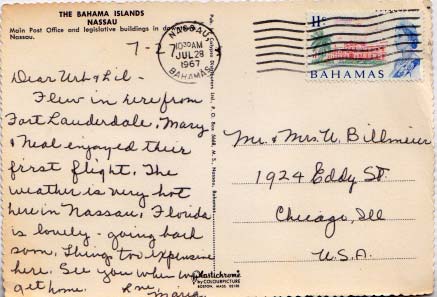 THE BAHAMA ISLANDS
NASSAU
Main Post Office and legislative buildings in
Nassau.
7-2
NASSAU
10 30 AM
JUL 28
1967
BAHAMAS
11c
BAHAMAS
Dear Urb & Lil -
Flew in here from
Fort Lauderdale, Mary
& Neal enjoyed their
first flight. The
weather is very hot
here in Nassau, Florida
is lovely - going back
soon. Things too expensive
here. See you when we
get home.
Mr. & Mrs. U. Billmeier
1924 Eddy St.
Chicago, Ill
U.S.A.
Plastichrome
by COLOURPICTURE
BOSTON, MASS 02130